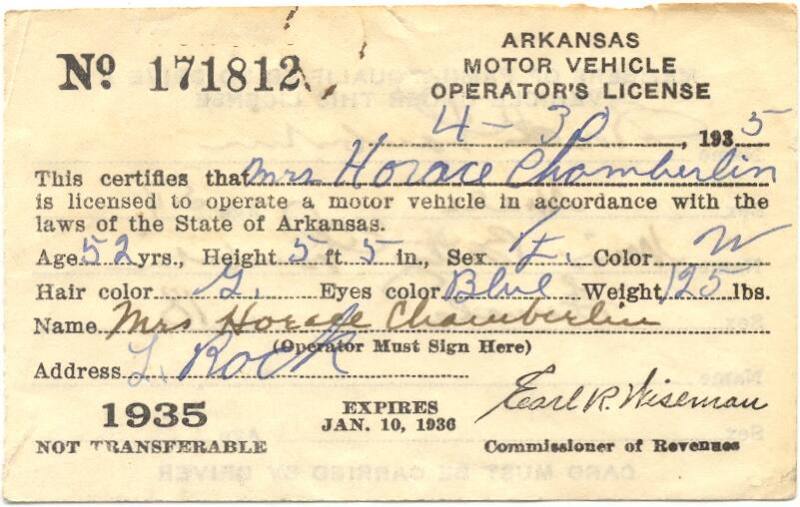 ARKANSAS
MOTOR VEHICLE
OPERATOR'S LICENSE
No 171812
4-30, 1935
This certifies that Mrs Horace Chamberlin
is licensed to operate a motor vehicle in accordance with the
laws of the State of Arkansas.
Age 52 yrs., Height 5 ft 5 in., Sex f. Color W
Hair color G. Eyes color Blue Weight 125 lbs.
Name Mrs Horace Chamberlin
(Operator Must Sign Here)
Address L. Rock
1935 EXPIRES Earl R. Wiseman
JAN. 10, 1936
NOT TRANSFERABLE Commissioner of Revenues
CARD MUST BE CARRIED BY DRIVER